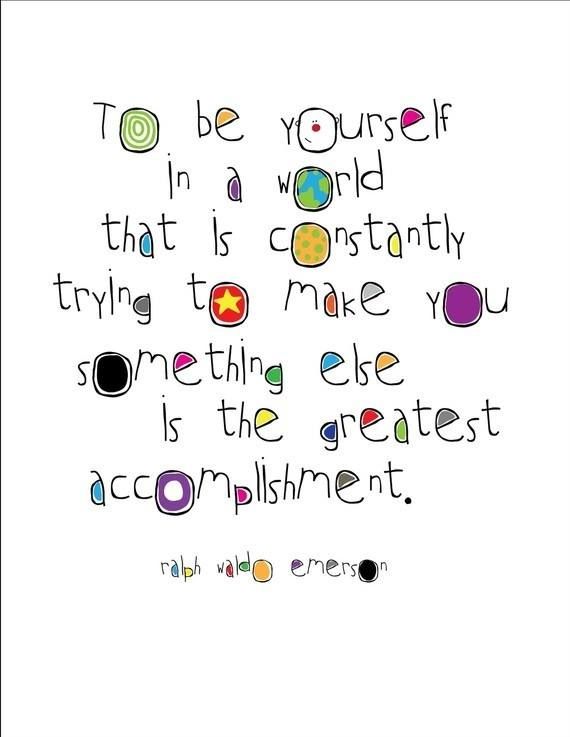 To be yourself
in a world
that is constantly
trying to make you
something else
is the greatest
accomplishment.
ralph waldo emerson